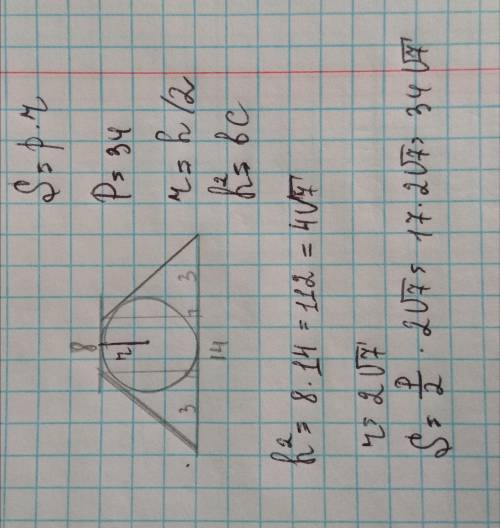 S = p · r
P = 34
r = h/2
h² = bc
8
r
3
3
14
h² = 8 · 14 = 112 = 4√7
r = 2√7
S = P/2 · 2√7 = 17 · 2√7 = 34√7